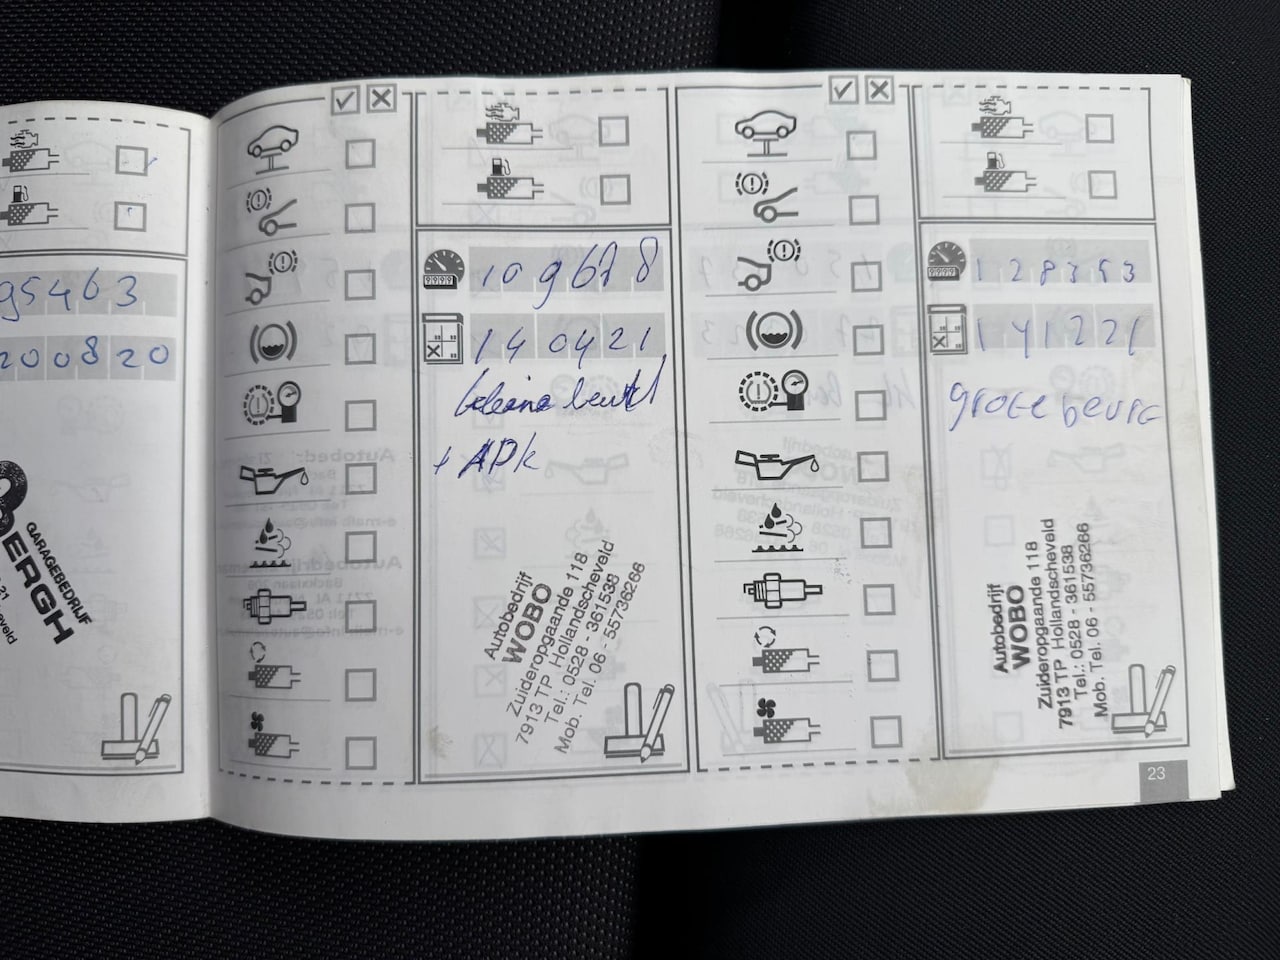 95463
200820
BERGH
GARAGEBEDRIJF
109678
140421
kleine beurt
+ APK
Autobedrijf
WOBO
Zuideropgaande 118
7913 TP Hollandscheveld
Tel.: 0528 - 361538
Mob. Tel. 06 - 55736266
128353
141221
grote beurt
Autobedrijf
WOBO
Zuideropgaande 118
7913 TP Hollandscheveld
Tel.: 0528 - 361538
Mob. Tel. 06 - 55736266
23